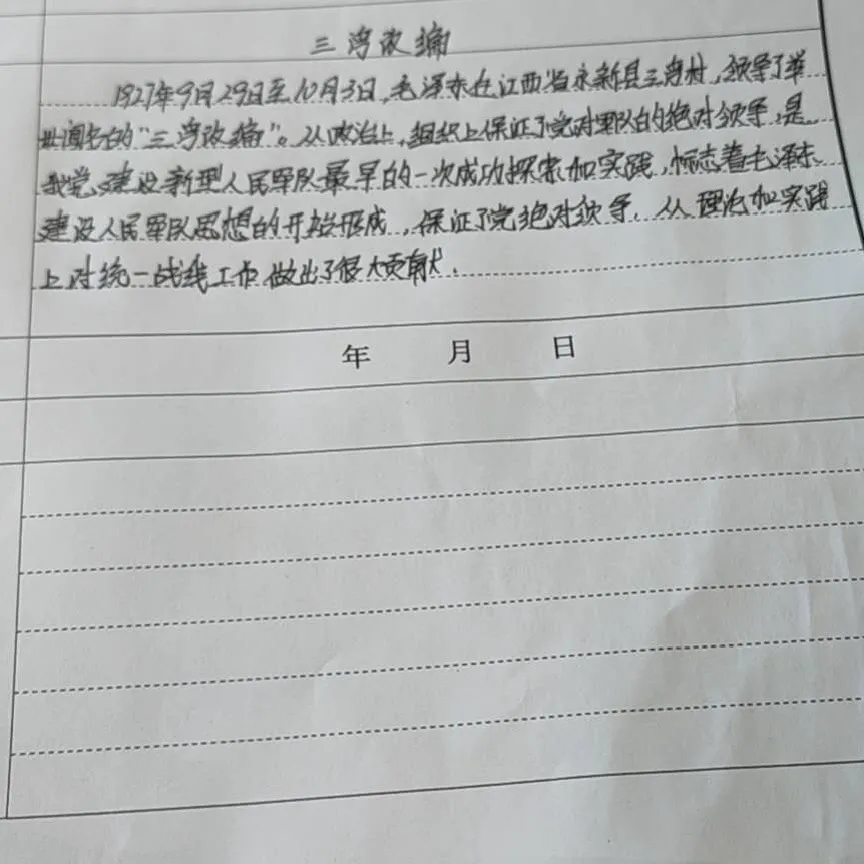 三湾改编
1927年9月29日至10月3日,毛泽东在江西省永新县三湾村,领导了举
世闻名的"三湾改编"。从政治上,组织上保证了党对军队的绝对领导,是
我党建设新型人民军队最早的一次成功探索和实践,标志着毛泽东
建设人民军队思想的开始形成,保证了党绝对领导,从理论和实践
上对统一战线工作做出了很大贡献.
年 月 日